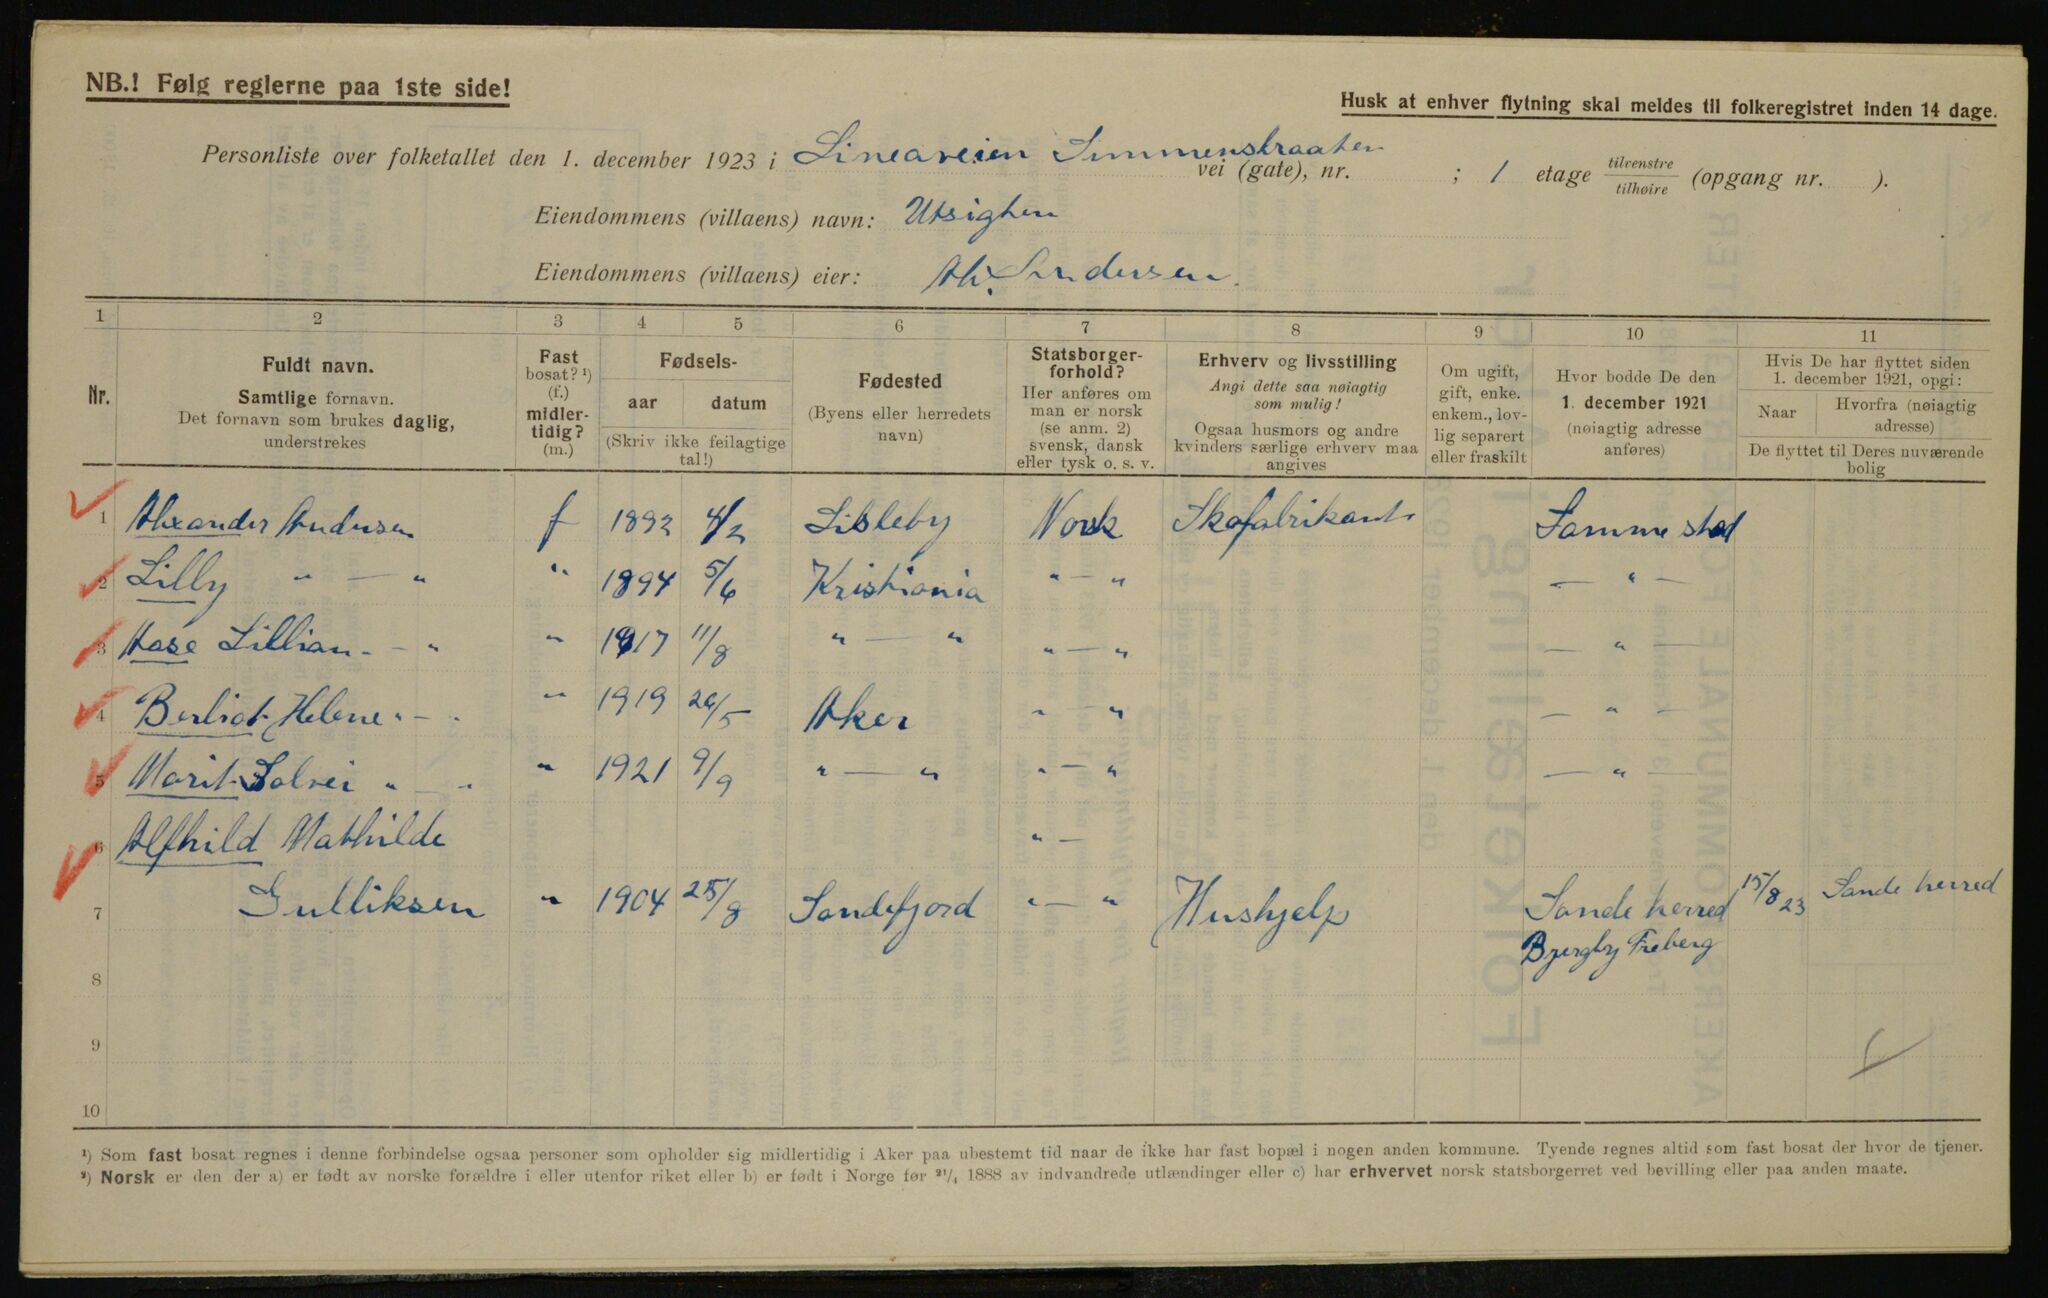 NB.! Følg reglerne paa 1ste side!
Husk at enhver flytning skal meldes til folkeregistret inden 14 dage.
Personliste over folketallet den 1. december 1923 i Lineaveien Simmenstraaten vei (gate), nr. ; 1 etage tilvenstre tilhøire (opgang nr. ).
Eiendommens (villaens) navn: Utsigten
Eiendommens (villaens) eier: Andersen.
1 2 3 4 5 6 7 8 9 10 11
Nr.
Fuldt navn.
Samtlige fornavn.
Det fornavn som brukes daglig,
understrekes
Fast
bosat? ¹)
(f.)
midler-
tidig?
(m.)
Fødsels-
aar datum
(Skriv ikke feilagtige
tal!)
Fødested
(Byens eller herredets
navn)
Statsborger-
forhold?
Her anføres om
man er norsk
(se anm. 2)
svensk, dansk
eller tysk o. s. v.
Erhverv og livsstilling
Angi dette saa nøiagtig
som mulig!
Ogsaa husmors og andre
kvinders særlige erhverv maa
angives
Om ugift,
gift, enke.
enkem., lov-
lig separert
eller fraskilt
Hvor bodde De den
1. december 1921
(nøiagtig adresse
anføres)
Hvis De har flyttet siden
1. december 1921, opgi:
Naar Hvorfra (nøiagtig
adresse)
De flyttet til Deres nuværende
bolig
1 Alexander Andersen f 1892 4/2 Lisleby Norsk Skofabrikant Samme sted
2 Lilly " — " " 1894 5/6 Kristiania " — " — " —
3 Aase Lillian - — " " 1917 11/8 " — " " — " — " —
4 Berliot Helene " — " " 1919 26/5 Aker " — " — " —
5 Marit Solvei " — " " 1921 9/9 " — " " — " — " —
6 Alfhild Mathilde " —
7 Gulliksen " 1904 25/8 Sandefjord " — " Hushjelp Sande herred 15/8 23 Sande herred
Bjergby Freberg
8
9
10
¹) Som fast bosat regnes i denne forbindelse ogsaa personer som opholder sig midlertidig i Aker paa ubestemt tid naar de ikke har fast bopæl i nogen anden kommune. Tyende regnes altid som fast bosat der hvor de tjener.
²) Norsk er den der a) er født av norske forældre i eller utenfor riket eller b) er født i Norge før ²¹/₄ 1888 av indvandrede utlændinger eller c) har erhvervet norsk statsborgerret ved bevilling eller paa anden maate.